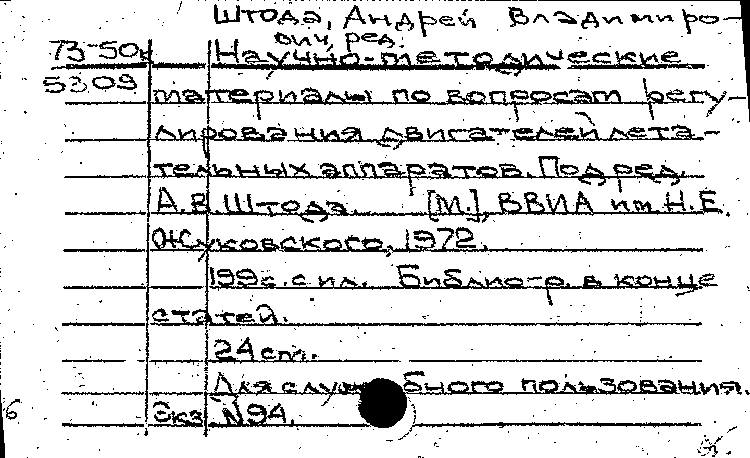 Штода, Андрей Владимиро-
вич, ред.
73-50к Научно-методические
5309 материалы по вопросам регу-
лирования двигателей лета-
тельных аппаратов. Под ред.
А.В. Штода. [М.], ВВИА им. Н.Е.
Жуковского, 1972.
199с. с ил. Библиогр. в конце
статей.
24 cm.
Для служебного пользования.
Экз. N94.
6